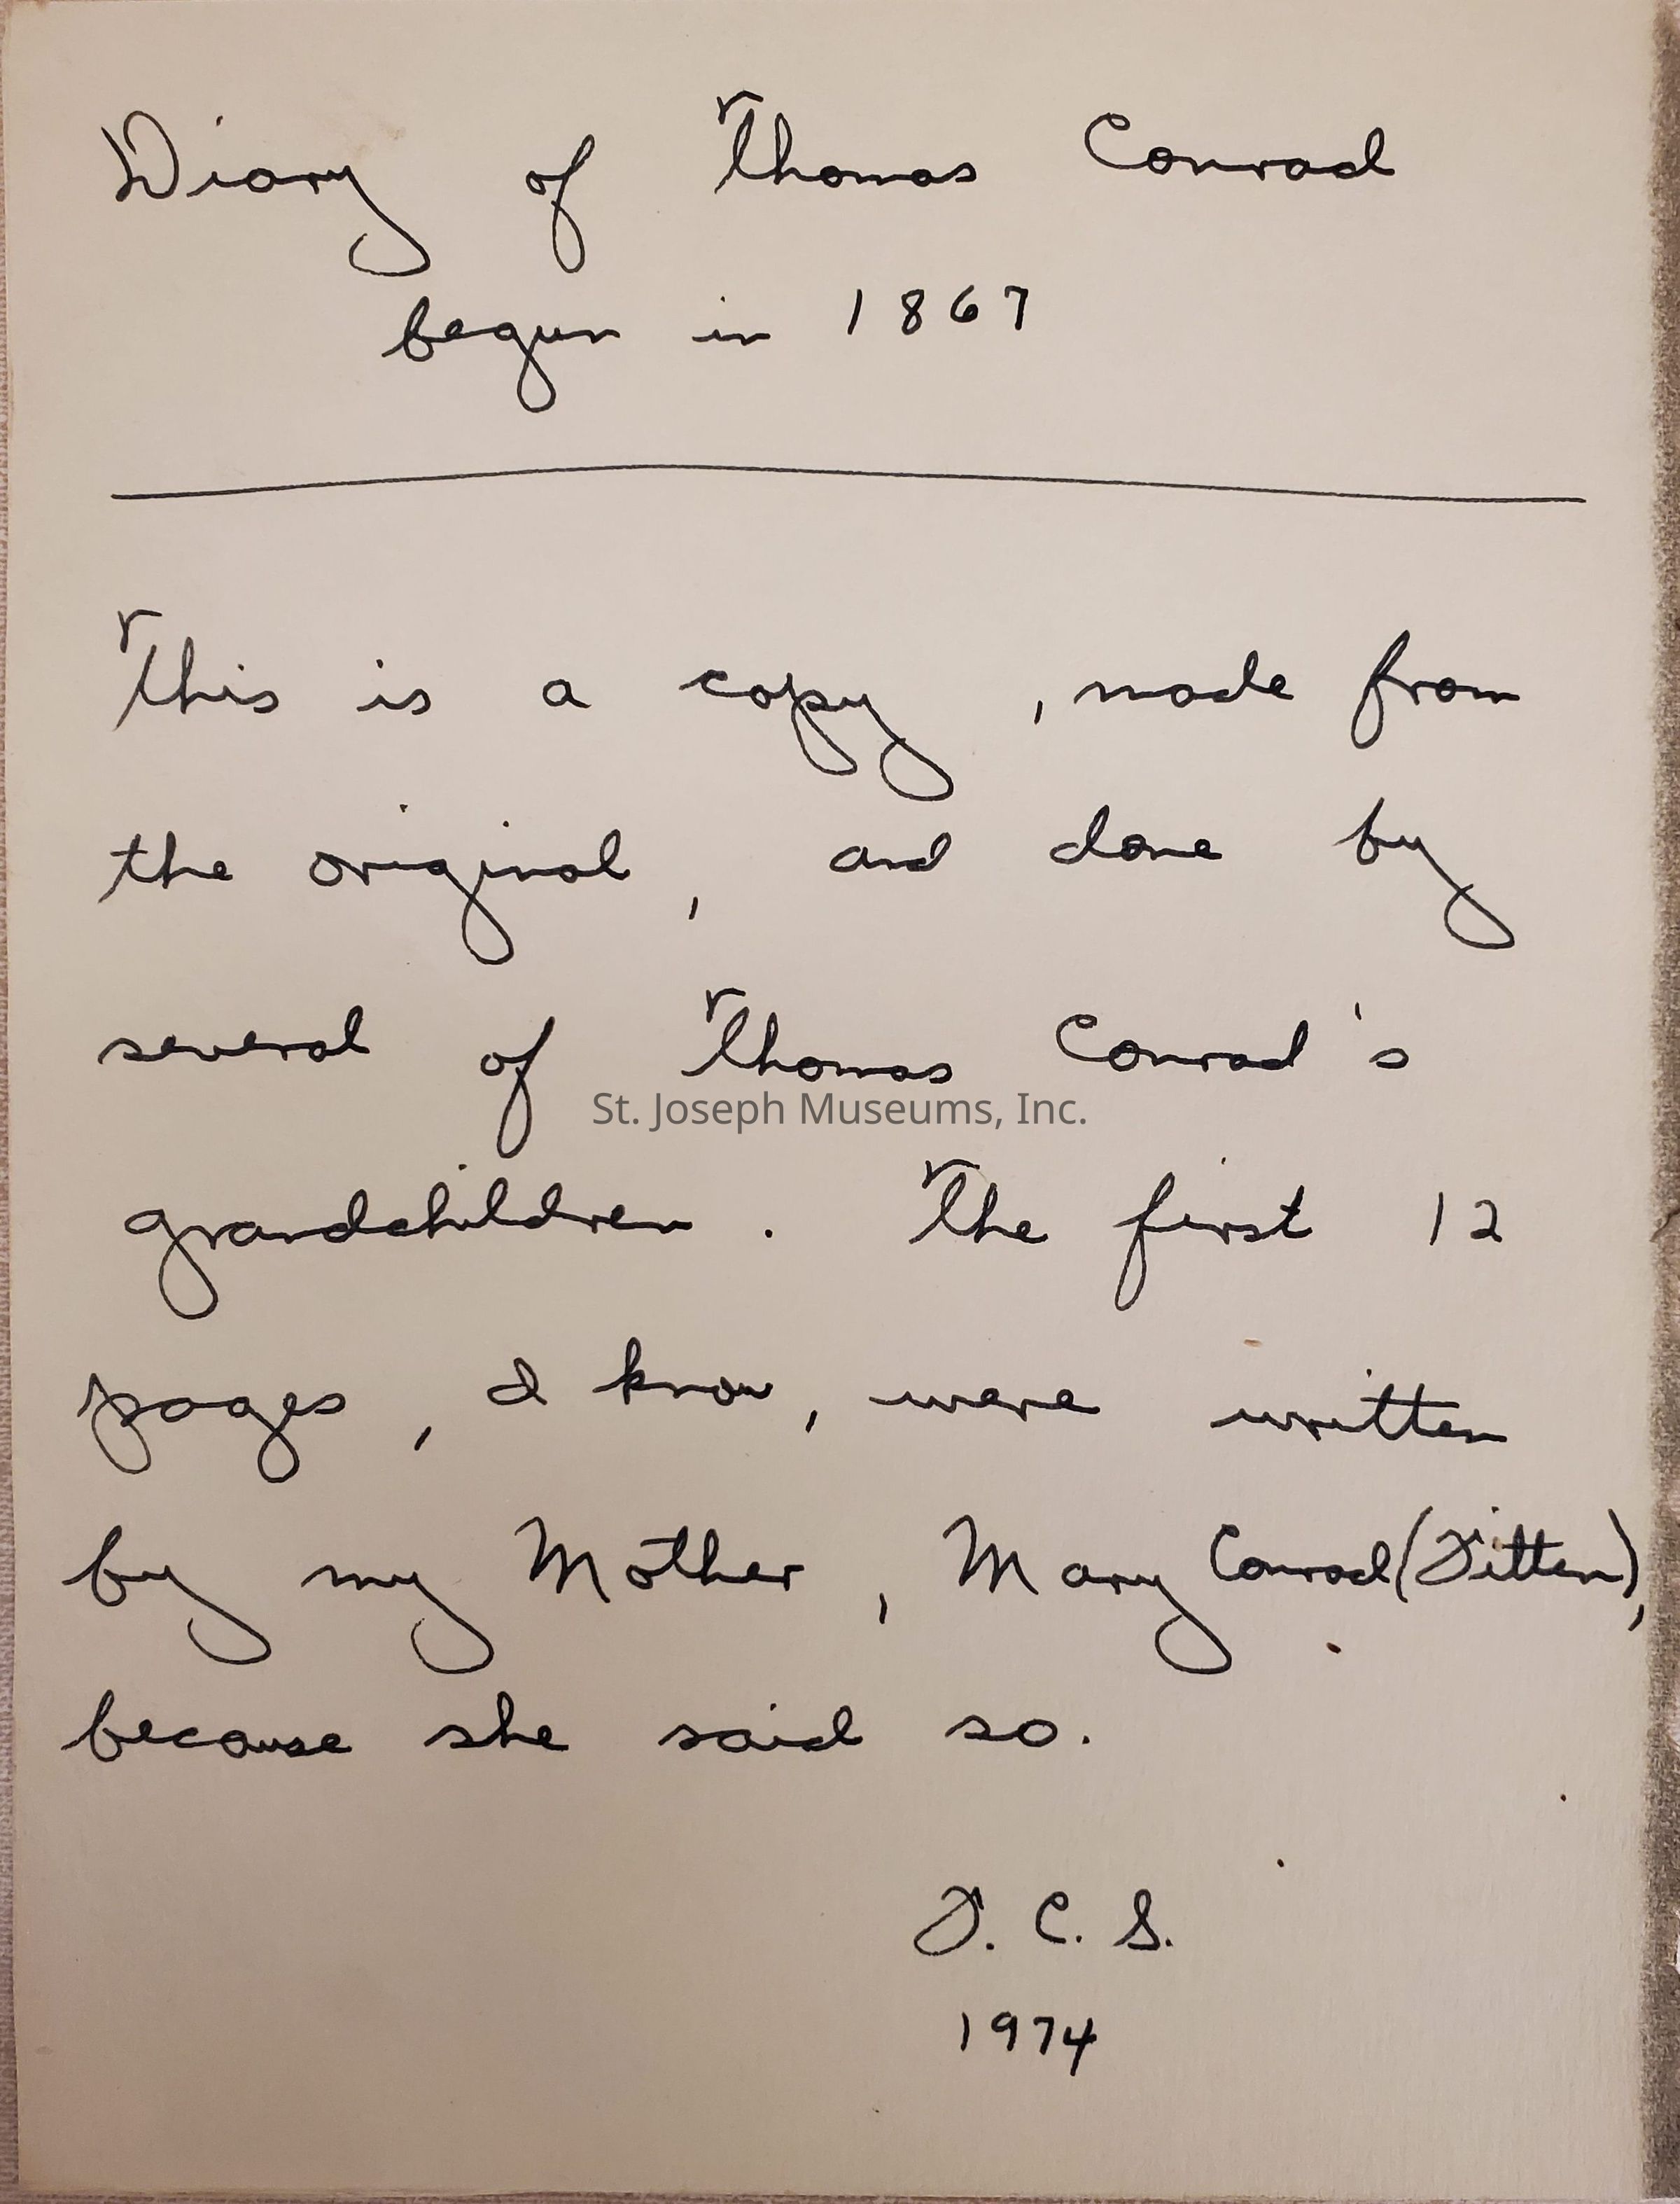 Diary of Thomas Conrad
begun in 1867
This is a copy, made from
the original, and done by
several of Thomas Conrad's
St. Joseph Museums, Inc.
grandchildren. The first 12
pages, I know, were written
by my Mother, Mary Conrad
because she said so.
C. S.
1974